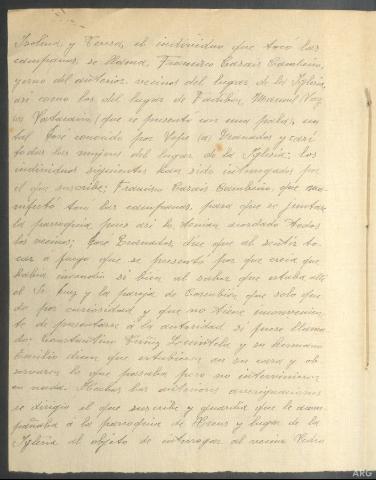 Isolina y Teresa, el individuo que tocó las
campanas, se llama Francisco Casais
yerno del anterior vecinos del lugar de la Iglesia,
asi como los del lugar de Manuel
(que se presentó con una palo), un
tal José conocido por Pepe (a) Granados y casi
todas las mujeres del lugar de la Iglesia; los
individuos siguientes han sido interrogados por
el que suscribe; Francisco Casais que ma-
nifestó tocó las campanas, para que se juntase
la parroquia, pues asi lo tenian acordado todos
los vecinos; José Granados, dice que al sentir to-
car a fuego que se presentó por que creia que
habia incendio si bien al saber que estaba alli
el Sr. Cruz y la pareja de que solo que-
dó por curiosidad y que no tiene inconvenien-
te de presentarse á la autoridad si fuese llama-
do; Constantino y su hermano
Emilio dicen que estubieron en su casa y ob-
servaron lo que pasaba pero no intervinieron
en nada. Hechas las anteriores averiguaciones
se dirigió el que suscribe y guardia que le acom-
pañaba á la parroquia de y lugar de la
Iglesia al objeto de interrogar al vecino Pedro
ARG